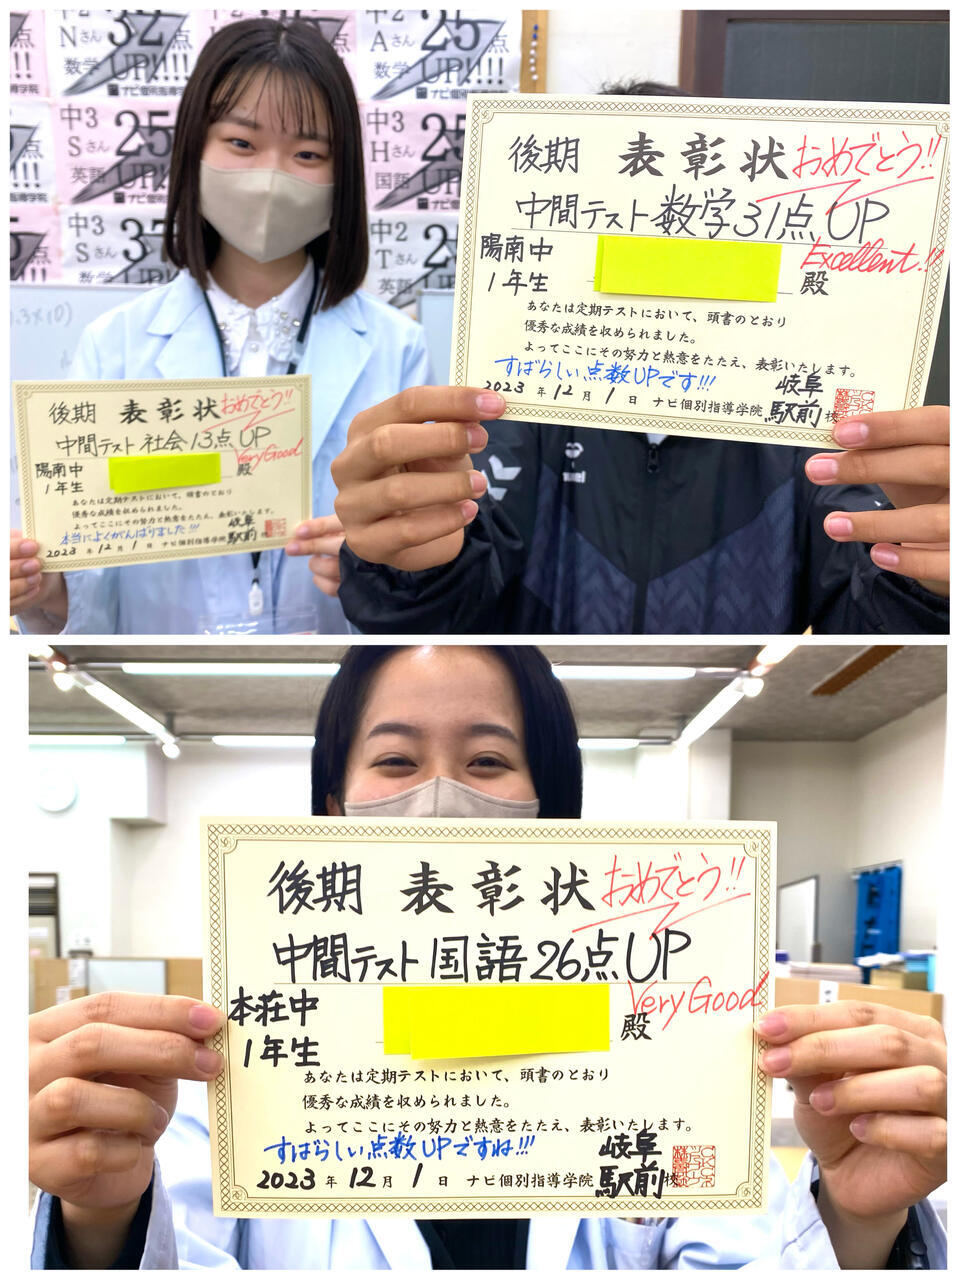 中2
Nさん
数学
32点
UP!!!!
中2
Aさん
25点
UP!!!!
ナビ個別指導学院
中3
Sさん
英語
25
UP!!
中3
Hさん
国語
25
ナビ個別指導学院
中3
Sさん
数学
37
UP!!
中2
Tさん
後期 表彰状 おめでとう!!
中間テスト 数学 31点 UP
陽南中 Excellent!!
1年生 殿
あなたは定期テストにおいて、頭書のとおり
優秀な成績を収められました。
よってここにその努力と熱意をたたえ、表彰いたします。
すばらしい点数UPです!!!
2023年12月1日 ナビ個別指導学院 岐阜駅前校
後期 表彰状 おめでとう!!
中間テスト 社会 13点 UP
陽南中 殿 Very Good
1年生
あなたは定期テストにおいて、頭書のとおり
優秀な成績を収められました。
よってここにその努力と熱意をたたえ、表彰いたします。
本当によくがんばりました!!!
2023年12月1日 ナビ個別指導学院 岐阜駅前校
後期 表彰状 おめでとう!!
中間テスト 国語 26点 UP
本荘中 Very Good
1年生 殿
あなたは定期テストにおいて、頭書のとおり
優秀な成績を収められました。
よってここにその努力と熱意をたたえ、表彰いたします。
すばらしい点数UPですね!!!
2023年12月1日 ナビ個別指導学院 岐阜駅前校